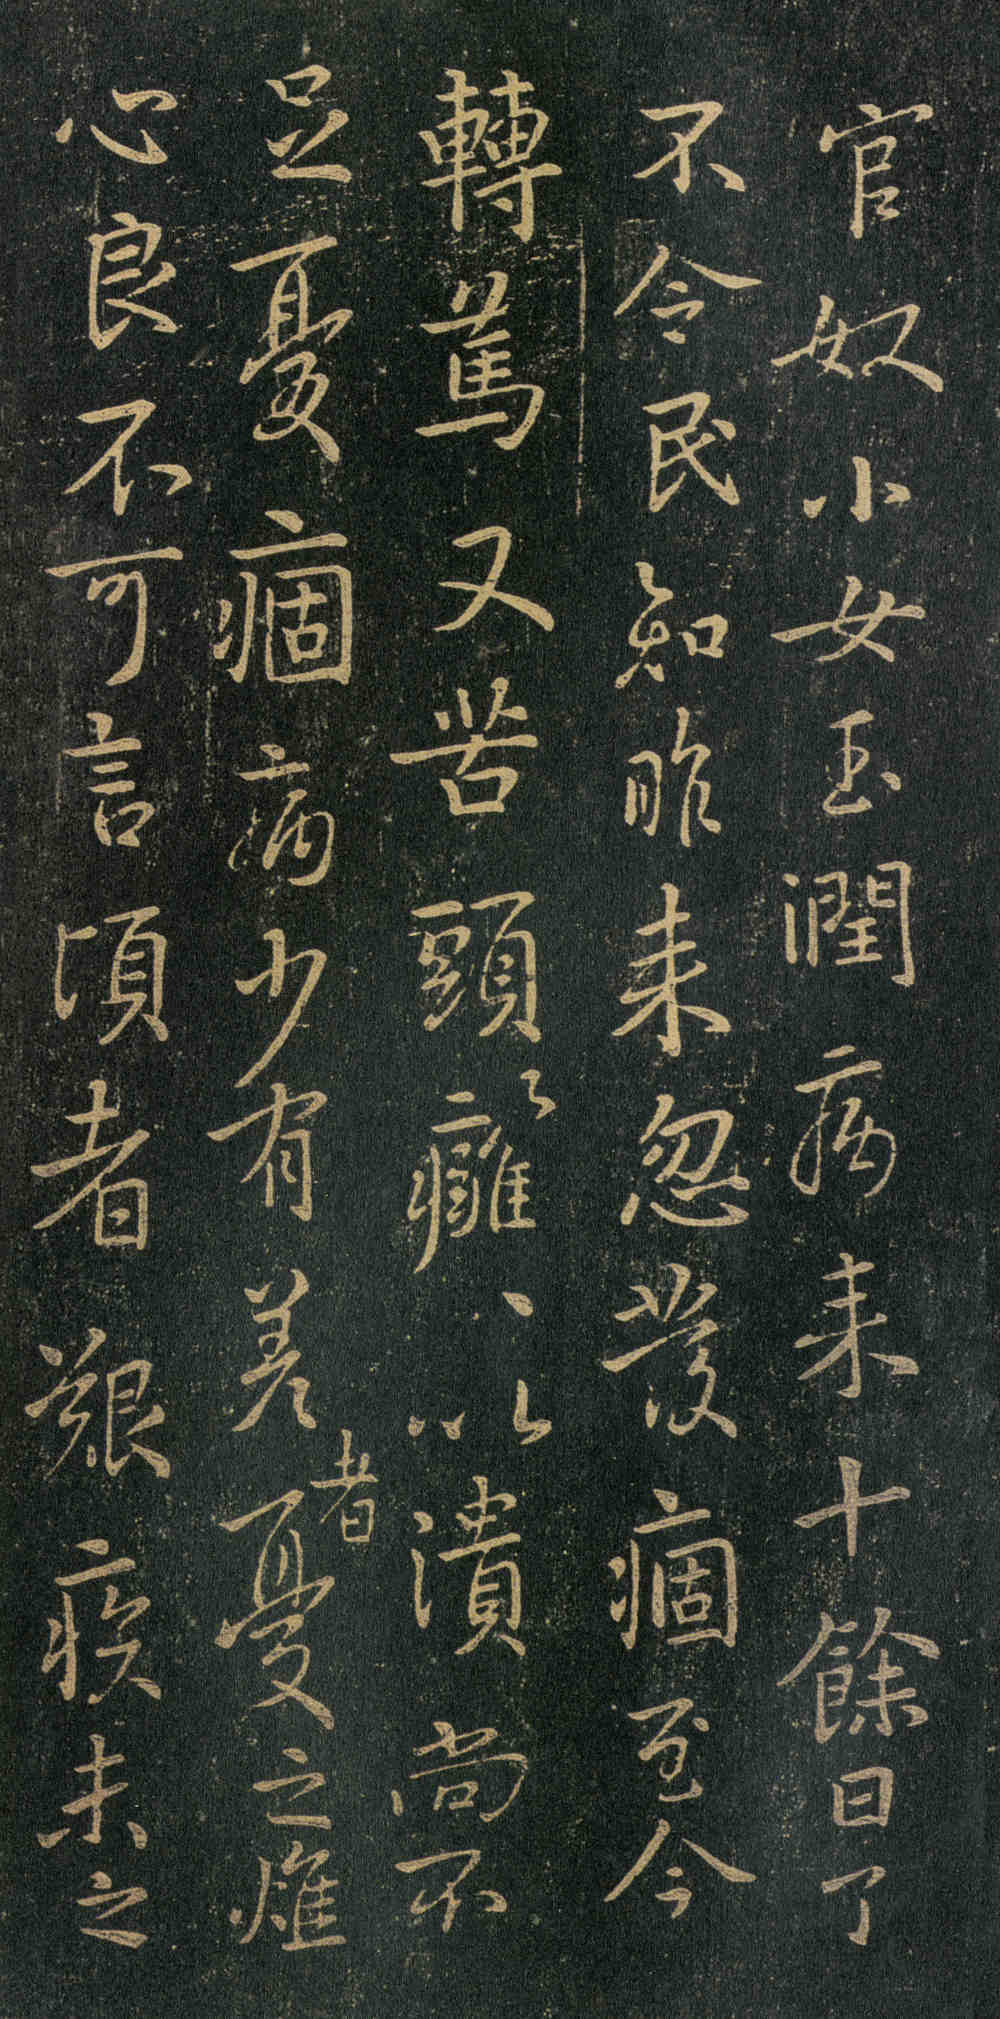 官奴小女玉潤病来十餘日了
不令民知昨来忽發痼至今
轉篤又苦頭〻癰〻以潰尚不
足憂痼病少有差者憂之燋
心良不可言頃者艱疾未之